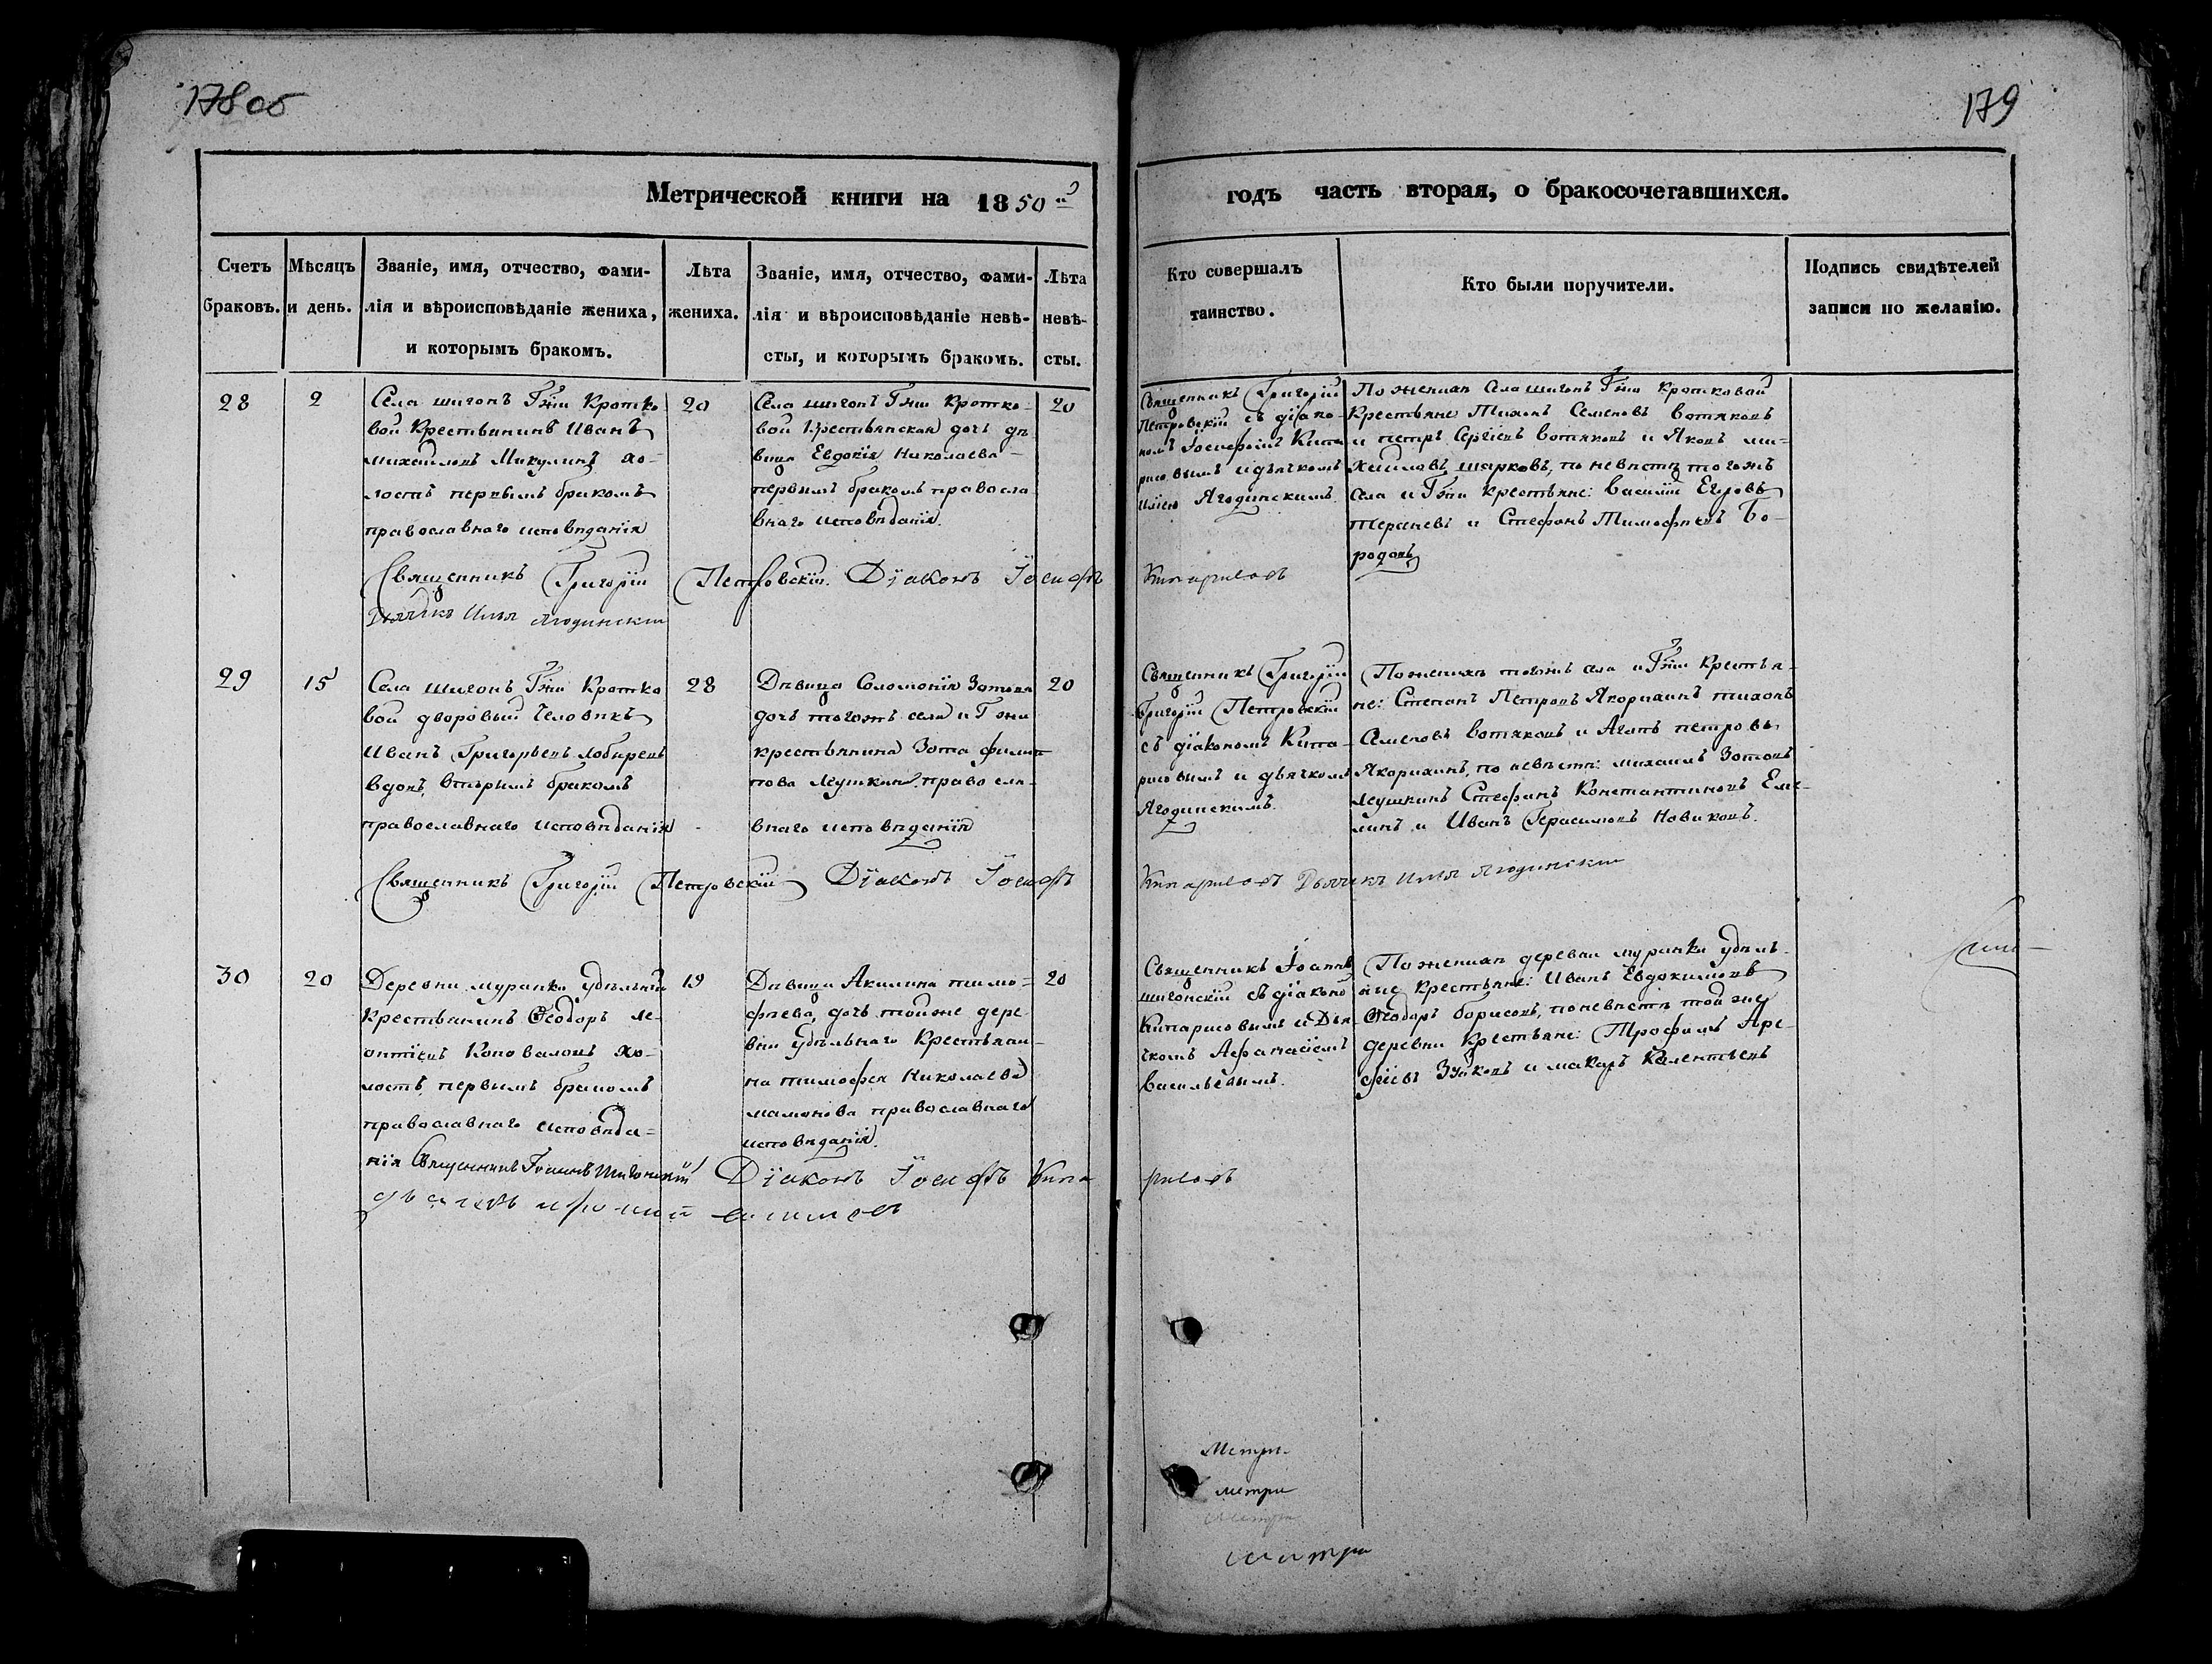 178 об
179
Метрической книги на 1850й
годъ часть вторая, о бракосочетавшихся.
Счетъ браковъ.
Мѣсяцъ и день.
Званіе, имя, отчество, фами-
лія и вѣроисповѣданіе жениха,
и которымъ бракомъ.
Лѣта
жениха.
Званіе, имя, отчество, фами-
лія и вѣроисповѣданіе невѣ-
сты, и которымъ бракомъ.
Лѣта
невѣ-
сты.
Кто совершалъ
таинство.
Кто были поручители.
Подпись свидѣтелей
записи по желанію.
28
2
Села шигонъ Гжи Кротко
вой Крестьянинъ Иванъ
михайловъ Микулинъ хо-
лостъ первымъ бракомъ
православнаго исповѣданія
20
Села шигонъ Гжи Кротко-
вой Крестьянская дочь дѣ
вица Евдокія Николаева
первымъ бракомъ правосла
внаго исповѣданія.
20
Священникъ Григорій
Петровскій съ діако-
номъ Іосифомъ Кипа
рисовымъ и дьячкомъ
Иліею Ягодинскимъ.
По женихѣ Села шигонъ Гжи Кротковой
Крестьяне Тихонъ Семеновъ вотяковъ
и петръ Сергѣевъ вотяковъ и Яковъ ми-
хайловъ шарковъ, по невѣстѣ тогожъ
села и Гжи крестьяне: Василій Егоровъ
и Стефанъ Тимофѣевъ Бо-
родовъ
Священникъ Григорій Петровскій. Діаконъ Іосифъ Кипарисовъ
Дьячкъ Илья Ягодинскій
29
15
Села Шигонъ Гжи Кротко
вой дворовый Человѣкъ
Иванъ Григорьевъ
вдовъ, вторымъ бракомъ
православнаго исповѣданія
28
Дѣвица Соломонія Зотова
дочь тогожъ села и Гжи
крестьянина Зота филип
пова Леушкина православ
внаго исповѣданія
20
Священникъ Григорій
Григорій Петровскій
съ діакономъ Кипа-
рисовымъ и дьячкомъ
Ягодинскимъ.
По женихѣ тогожъ села и Гжи Крестья-
не: Степанъ Петровъ Якорихинъ тихонъ
Семеновъ вотяковъ и Агапъ петровъ
Якорихинъ, по невѣстѣ: михаилъ Зотовъ
Леушкинъ Стефанъ Константиновъ Еме-
линъ и Иванъ Герасимовъ Новиковъ.
Священникъ Григорій Петровскій Діаконъ Іосифъ Кипарисовъ Дьячикъ Илья Ягодинскій
30
20
Деревни муранки удѣльный
крестьянинъ Ѳеодоръ Ле-
онтіевъ Коноваловъ хо-
лостъ, первымъ бракомъ
православнаго исповѣда-
нія
19
Дѣвица Акилина тимо-
фѣева, дочь тойже дере
вни удѣльнаго Крестьяни-
на тимофея Николаева
мамонова православнаго
исповѣданія.
20
Священникъ Іоаннъ
шигонскій съ діакономъ
Кипарисовымъ и Дья
чкомъ Афанасіемъ
васильевымъ.
По женихѣ деревни муранки удѣль-
ные крестьяне: Иванъ Евдокимовъ
Ѳеодоръ борисовъ, по невѣстѣ той же
деревни крестьяне: Трофимъ Аре-
фіевъ Зуйковъ и макаръ Калентьевъ
Священникъ Іоаннъ Шигонскій Діаконъ Іосифъ Кипарисовъ
Метри-
метри
метри
метри